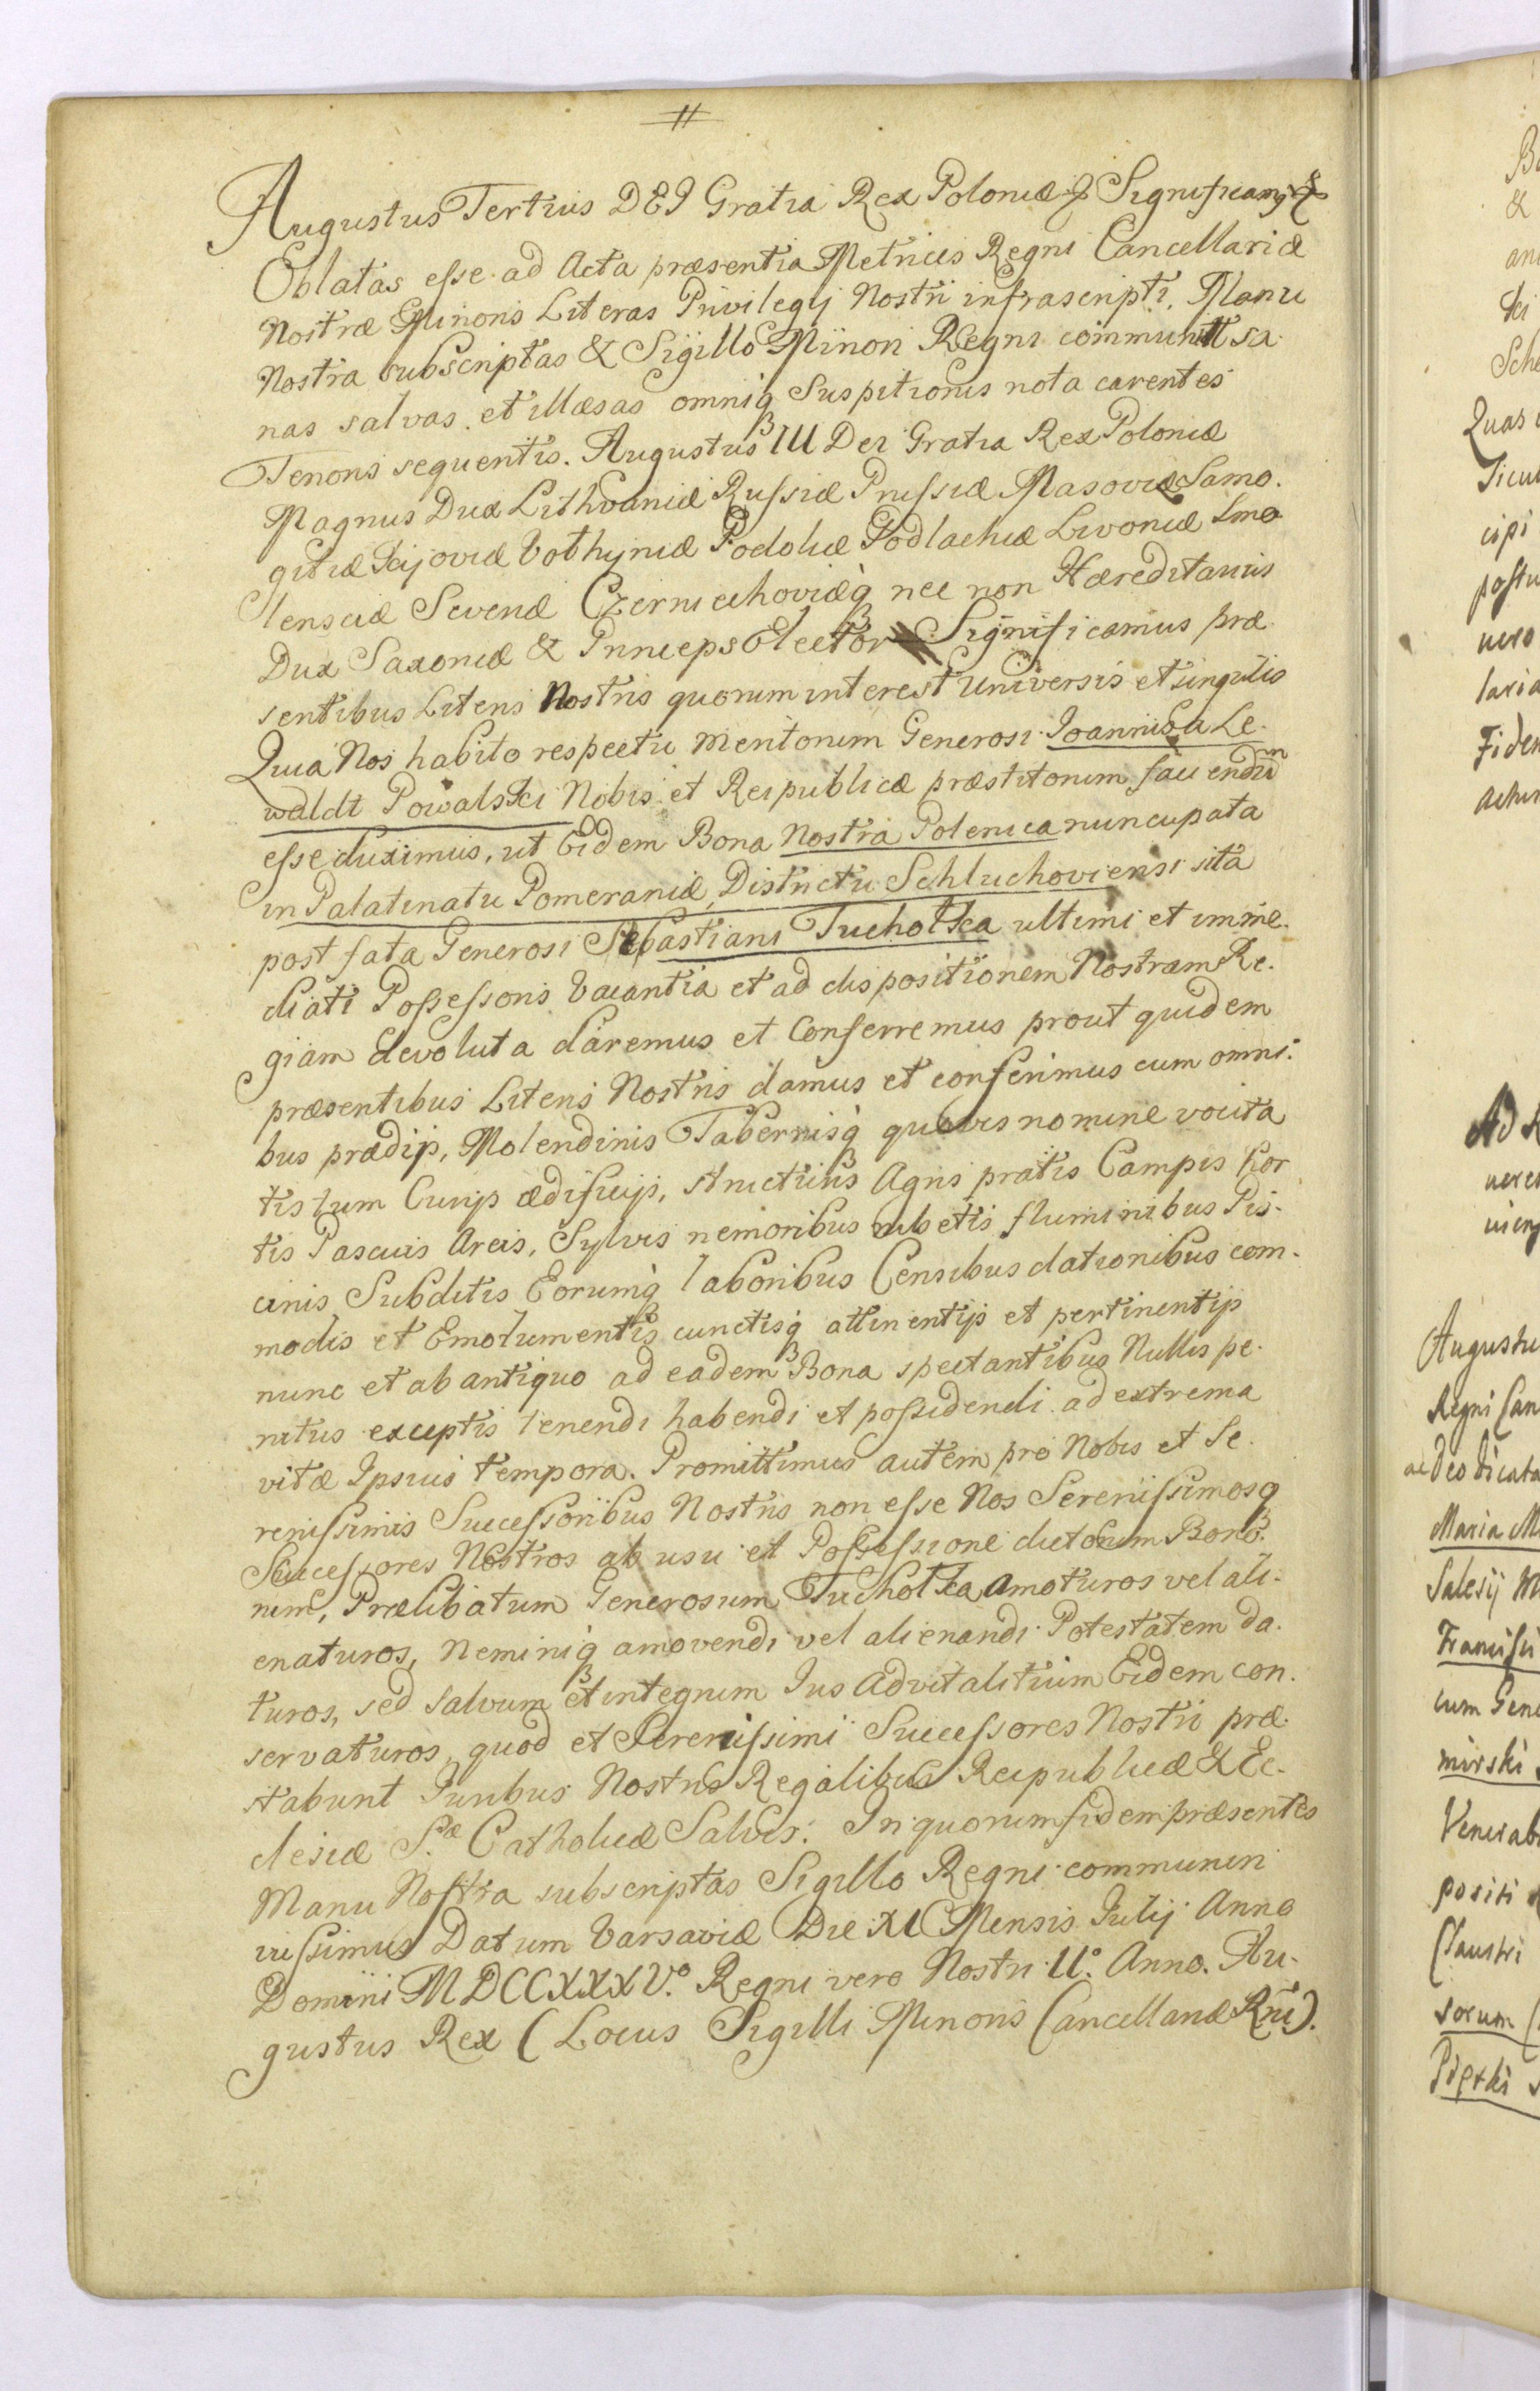 Augustus Tertius DEI Gratia Rex Poloniæ & Significamus &
Oblatas esse ad Acta præsentia Metrices Regni Cancellariæ
Nostræ Minoris Literas Privilegij Nostri infrascripti, Manu
Nostra subscriptas & Sigillo Minori Regni communitt sa-
nas salvas et illæsas omniq Suspitionis nota carentes
Tenoris sequentis. Augustus III Dei Gratia Rex Poloniæ
Magnus Dux Lithvaniæ Russiæ Prussiæ Masoviæ Samo-
gitiæ Kijoviæ Volhyniæ Podoliæ Podlachiæ Livoniæ Smo-
lensciæ Severiæ Czerniechoviæq nec non Hæreditarius
Dux Saxoniæ & Princeps Elector Significamus præ-
sentibus Literis Nostris quorum interest Universis et singulis
Quia Nos habito respectu meritorum Generosi Joannis a Le-
waldt Powalski Nobis et Reipublicæ præstitorum, faciendum
esse duximus, ut Eidem Bona Nostra Polenica nuncupata
in Palatinatu Pomeraniæ, Districtu Schluchoviensi sita
post fata Generosi Sebastiani Tucholka ultimi et imme-
diati Possessoris Vacantia et ad dispositionem Nostram Re-
giam devoluta daremus et Conferremus prout quidem
præsentibus Literis Nostris damus et conferimus cum omni-
bus prædijs, Molendinis Tabernisq quibvis nomine vocita
tis tum Curijs ædificijs, structuris Agris pratis Campis hor
tis Pascuis Areis, Sylvis nemoribus rubetis fluminibus Pis-
cinis Subditis Eorumq laboribus Censibus dationibus com-
modis et Emolumentis cunctisq attinentijs et pertinentijs
nunc et ab antiquo ad eadem Bona spectantibus Nullis pe-
nitus exceptis tenendi habendi et possidendi ad extrema
vitæ Ipsius tempora. Promittimus autem pro Nobis et Se-
renissimis Successoribus Nostris non esse Nos Serenissimosq
Successores Nostros ab usu et Possessione dictorum Bono-
rum, Prælibatum Generosum Tucholka amoturos vel ali-
enaturos, Neminiq amovendi vel alienandi Potestatem da-
turos, sed salvum et integrum Ius Advitalitium Eidem con-
servaturos, quod et Serenissimi Successores Nostri præ-
stabunt Juribus Nostris Regalibus Reipublicæ & Ec-
clesiæ S.æ Catholicæ Salvis. In quorum fidem præsentes
Manu Nostra subscriptas Sigillo Regni communiri
iussimus Datum Varsaviæ Die XI Mensis Julij Anno
Domini MDCCXXXV.º Regni vero Nostri II.º Anno. Au-
gustus Rex (Locus Sigilli Minoris Cancellariæ Rñi).